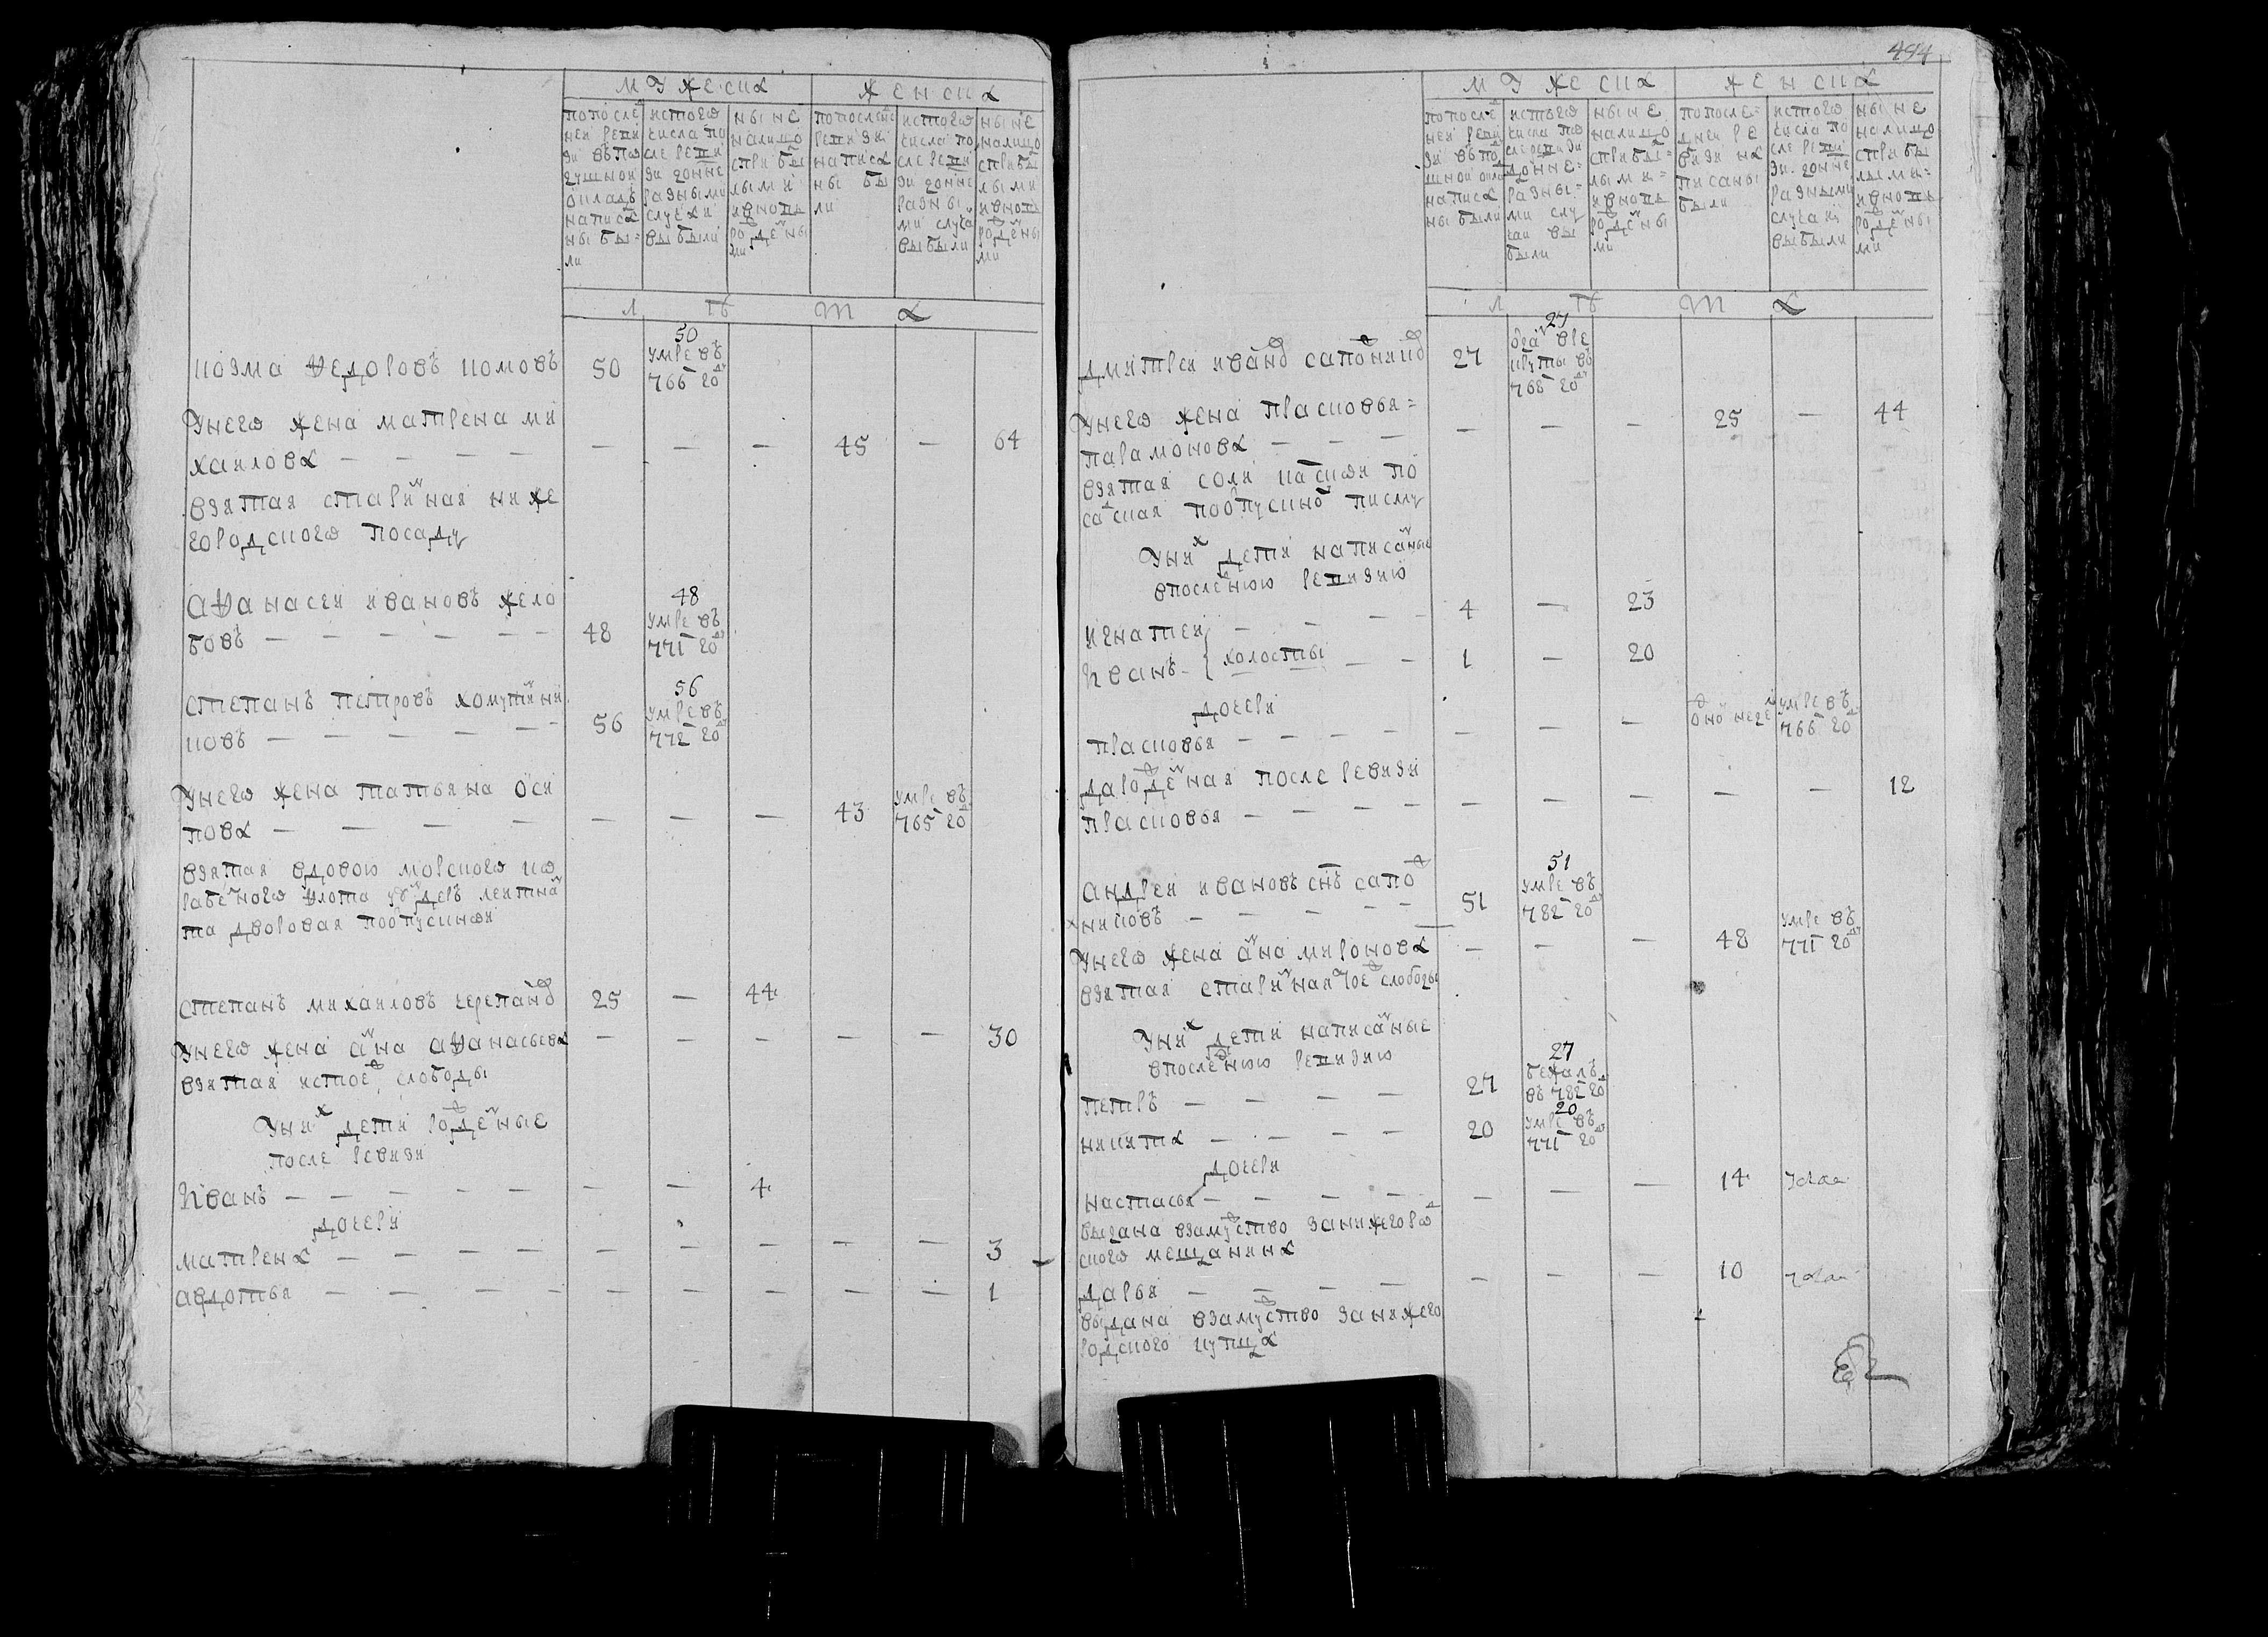 мужеска
женска
попосле
ней реви
зи въпо
душной
окладъ
написа
ны бы=
ли
истого
числа по
сле реви
зи донне
разными
случаи
выбыли
ныне
налицо
сприбы
лыми
ивновь
рожденны
ми
попоследне
ревизи
написа
ны бы
ли
истого
числа по
сле реви
зи донне
разны
ми случа
выбыли
ныне
налицо
сприбы
лыми
ивновь
рожденны
ми
лѣта
козма федоровъ комовъ
50
50
умре въ
766 году
унего жена матрена ми
хаилова — — — — — — — 45 — 64
взятая старинная ниже
городского посаду
афанасеи ивановъ жело
бовъ — — — — — — 48
48
умре въ
771 году
степанъ петровъ хомутинни
ковъ — — — — — 56
56
умре въ
772 году
унего жена татьяна оси
пова — — — — — — — 43
умре въ
765 году
взятая вдовою морского ко
рабелного флота
та дворовая поотпускной
степанъ михаиловъ черепанов 25 — 44
унего жена анна афанасьева — — — — — 30
взятая истое слободы
уних дети рожденые
после ревизи
иванъ — — — — — — — 4
дочери
матрена — — — — — — — — — 3
авдотья — — — — — — — — — 1
494
мужеска
женска
попосле
ней реви
зи въпо
душной окла
написа
ны были
истого
числа по
сле ревизи
донне=
разны=
ми слу
чаи вы
были
ныне
налицо
сприбы=
лыми=
ивновь
рожденны
ми
попосле=
дней ре
визи на
писаны
были
истого
числа по
сле реви
зи донне
разными
случаи
выбыли
ныне
налицо
сприбы
лыми=
ивновь
рожденны
ми
лѣта
дмитреи иванов сапожников 27
27
отдан вре
круты въ
768 году
унего жена прасковья=
парамонова — — — — — — 25 — 44
взятая соли
садская поотпускно писму
уних дети написанные
впоследнюю ревизию
игнатеи — — — 4 — 23
иванъ — холосты — — 1 — 20
дочери
прасковья — — — — — — —
одной недели
умре въ
766 году
дарожденная после ревизи
прасковья — — — — — — — — — 12
андреи ивановъ снъ сапож
никовъ — — — — — 51
51
умре въ
782 году
унего жена анна миронова — — — 48
умре въ
771 году
взятая старинная тое слободы
уних дети написанные
впоследнюю ревизию
петръ — — — — 27
27
бежалъ
въ 782 году
никита — — — — 20
20
умре въ
771 году
дочери
настасья — — — — — — — 14
выдана взамужство занижегород
ского мещанина
дарья — — — — — — 10
выдана взамужство занижего
родского купца